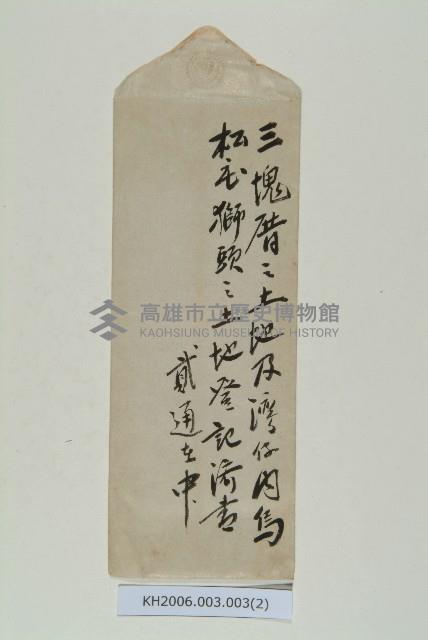 三塊厝之土地及灣仔內烏
松毛獅頭之土地登記濟書
貳通在中
高雄市立歷史博物館
KAOHSIUNG MUSEUM OF HISTORY
KH2006.003.003(2)